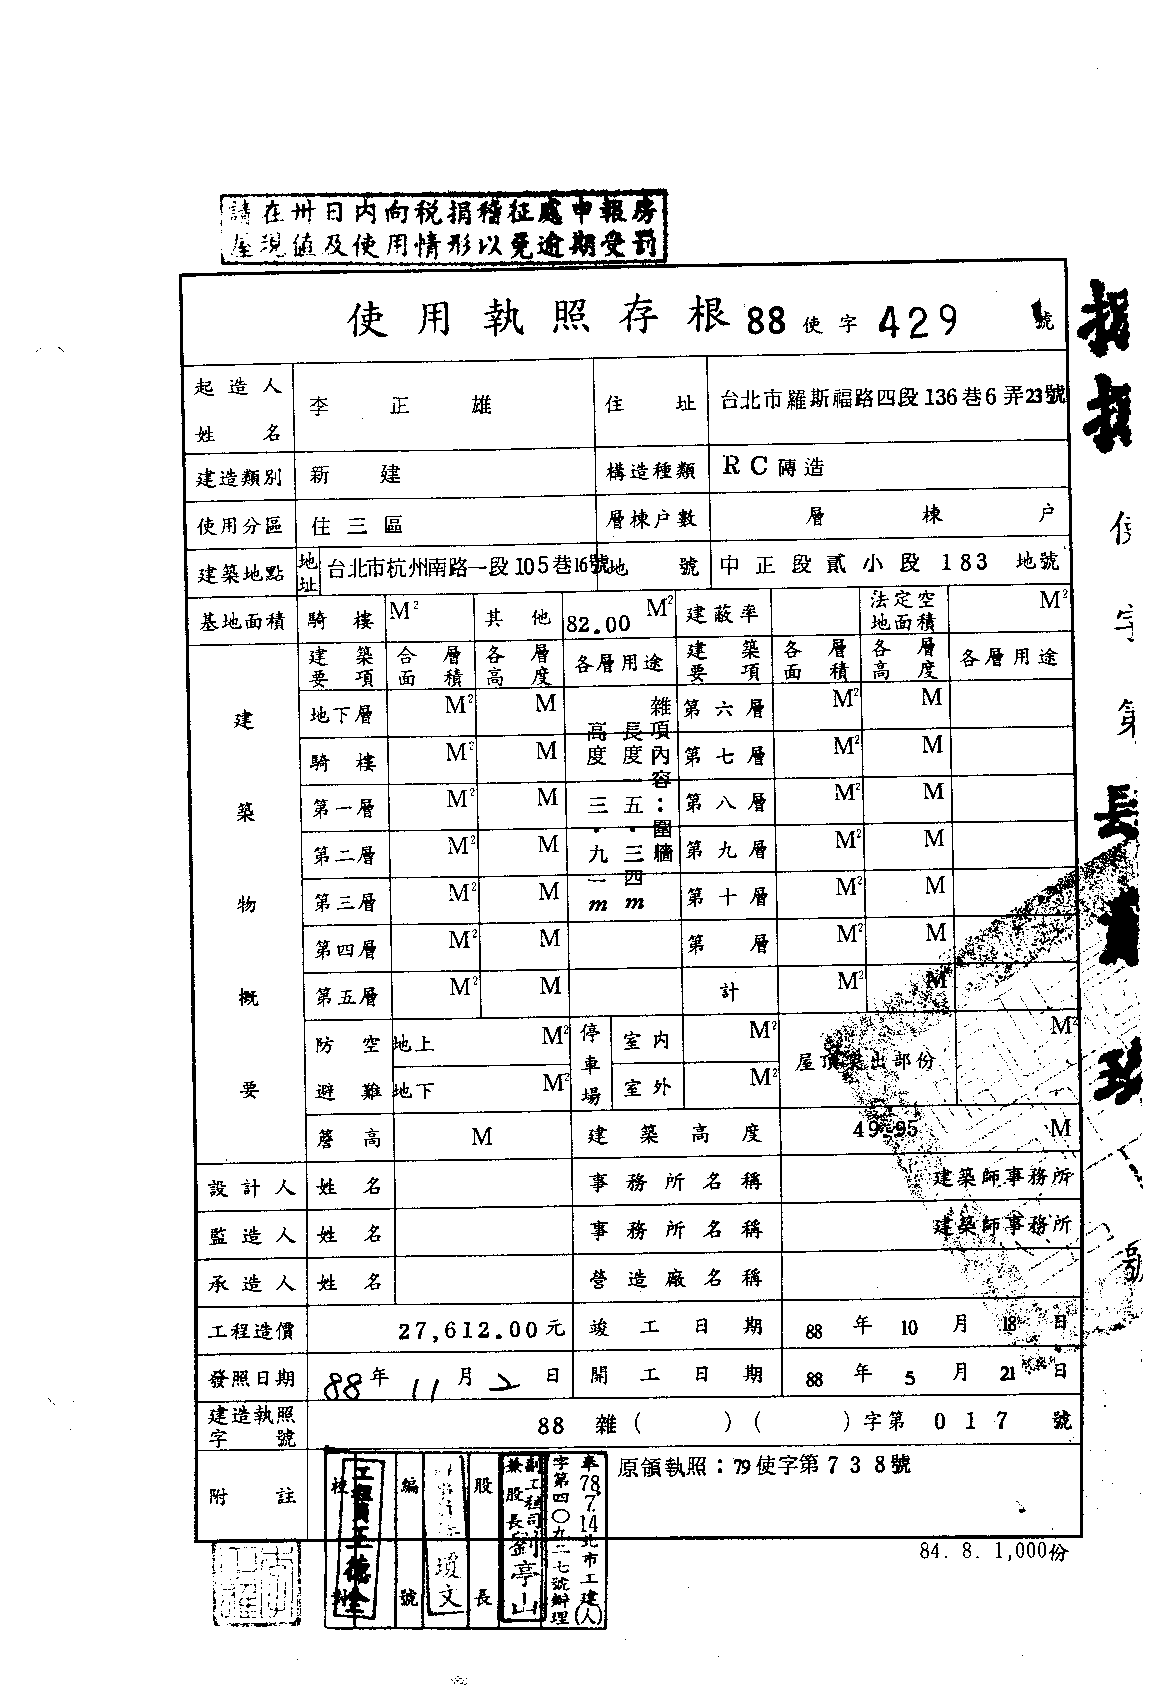 請在卅日內向稅捐稽征處申報房
屋現值及使用情形以免逾期受罰
使用執照存根 88 使字 429 號
起造人姓名 李正雄 住址 台北市羅斯福路四段136巷6弄23號
建造類別 新建 構造種類 RC磚造
使用分區 住三區 層棟户數 層 棟 户
建築地點 地址 台北市杭州南路一段105巷16號 地號 中正段貳小段183 地號
基地面積 騎樓 M² 其他 82.00 M² 建蔽率 法定空地面積 M²
建築物概要
建築要項 合層面積 各層高度 各層用途 建築要項 各層面積 各層高度 各層用途
地下層 M² M 第六層 M² M
騎樓 M² M 第七層 M² M
第一層 M² M 第八層 M² M
第二層 M² M 第九層 M² M
第三層 M² M 第十層 M² M
第四層 M² M 第 層 M² M
第五層 M² M 計 M² M
雜項內容：圍牆
長度 五．三四m
高度 三．九一m
防空避難 地上 M² 停車場 室內 M² 屋頂突出部份 M²
地下 M² 室外 M²
簷高 M 建築高度 49.95 M
設計人 姓名 事務所名稱 建築師事務所
監造人 姓名 事務所名稱 建築師事務所
承造人 姓名 營造廠名稱
工程造價 27,612.00元 竣工日期 88 年 10 月 18 日
發照日期 88年 11 月 2 日 開工日期 88 年 5 月 21 日
建造執照字號 88 雜( )( )字第 017 號
附註 原領執照：79使字第738號
奉78.7.14北市工建(人)
字第四〇九二七號辦理
副工程司
兼股長 劉亭山
股長
瓊文
編號
工程員王德全
84. 8. 1,000份
使字第
號